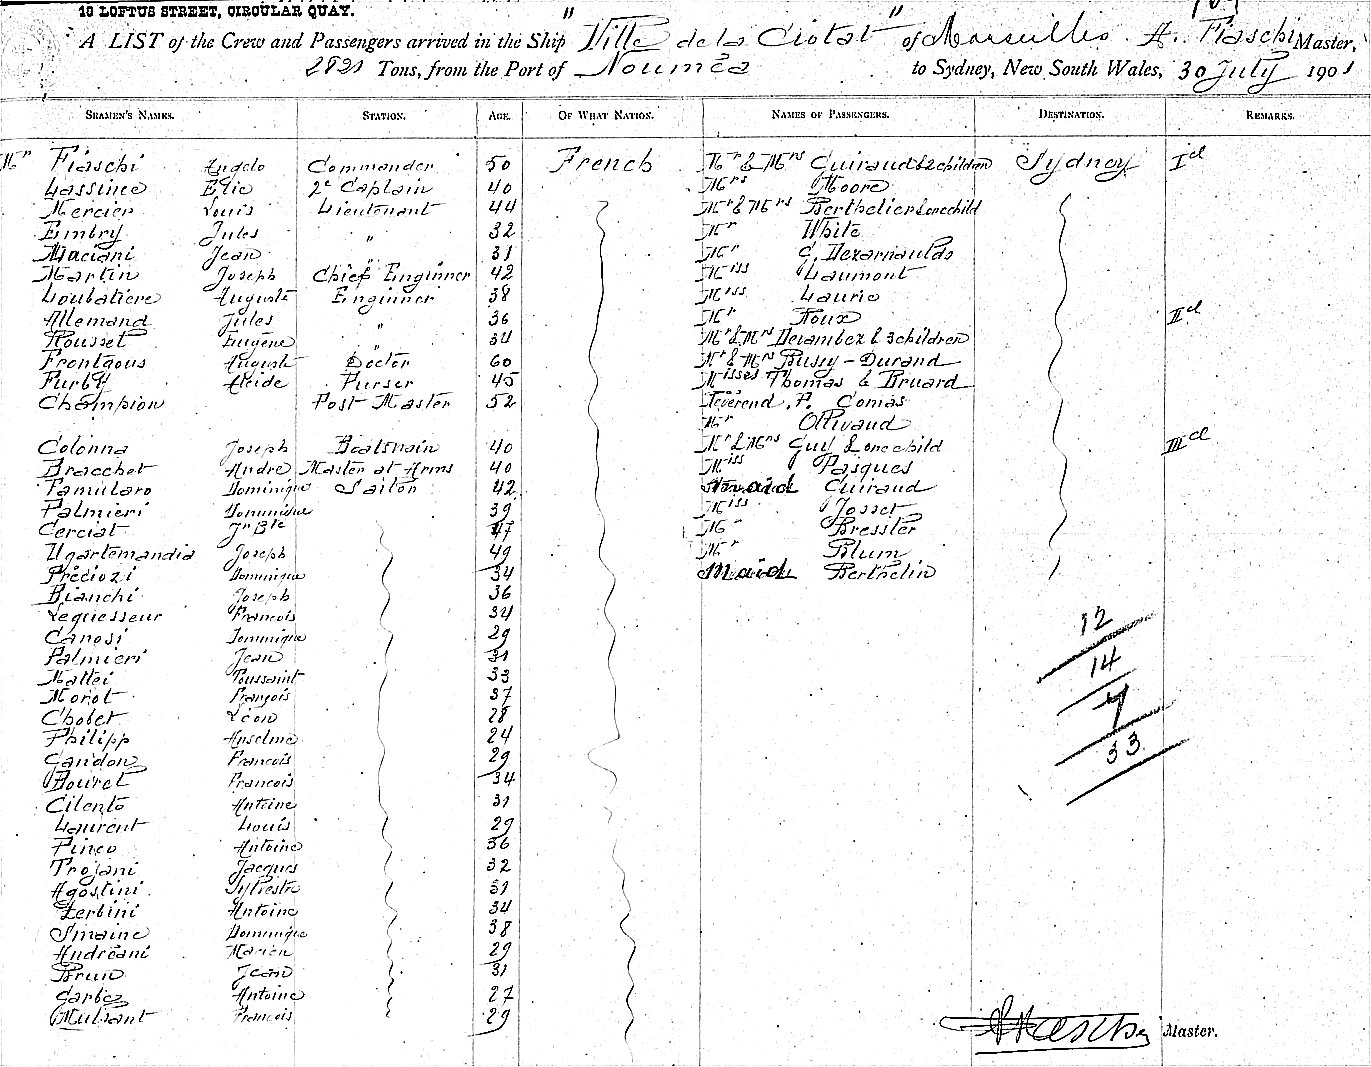 10 LOFTUS STREET, CIRCULAR QUAY.
A LIST of the Crew and Passengers arrived in the Ship "Ville de la Ciotat" of Marseilles A. Fiaschi Master,
2821 Tons, from the Port of Nouméa to Sydney, New South Wales, 30 July 1901
SEAMEN'S NAMES. STATION. AGE. OF WHAT NATION. NAMES OF PASSENGERS. DESTINATION. REMARKS.
Mr Fiaschi Angelo Commander 50 French Mr & Mrs Guiraud & 2 children Sydney Icl
Lassince Elie 2e Captain 40 Mrs Moore
Mercier Louis Lieutenant 44 Mr & Mrs Berthelier & one child
Embry Jules " 32 Mr White
Maciani Jean " 31 Mr C. Dexarnaulds
Martin Joseph Chief Enginner 42 Miss Laumont
Loubatiere Auguste Enginner 38 Miss Laurie
Allemand Jules " 36 Mr Roux IIcl
Rousset Eugène " 34 Mr & Mrs Decambex & 3 children
Frontgous Auguste Doctor 60 Mr & Mrs Bussy - Durand
Furby Alcide Purser 45 Misses Thomas & Bruard
Champion Post Master 52 Reverend P. Comas
Mr Ollivaud
Colonna Joseph Boatswain 40 Mr & Mrs Guy & one child IIIcl
Bracchet André Master at Arms 40 Miss Pasques
Famularo Dominique Sailor 42 maid Guiraud
Palmieri Dominique 39 Miss Josset
Cerciat Jn Bte 47 Mr Bressler
Ugartemandia Joseph 49 Mr Blum
Préciozi Dominique 34 Maid Berthelin
Bianchi Joseph 36
Lequesseur Francois 34
Canosi Dominique 29
Palmieri Jean 31
Mattei Toussaint 33
Morot François 37
Cholet Léon 28
Philipp Anselme 24
Gandon Francois 29
Bouret Francois 34
Cilento Antoine 31
Laurent Louis 29
Pinco Antoine 36
Trojani Jacques 32
Agostini Sylvestre 31
Zerbini Antoine 34
Smaine Dominique 38
Andréani Marien 29
Brun Jean 31
Garbez Antoine 27
Mulsant Francois 29
12
14
7
33
Master.